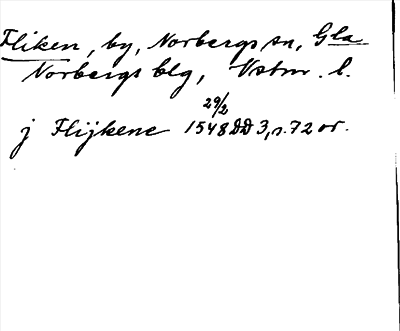 Fliken, by, Norbergs sn, Gla
Norbergs blg, Vstm. l.
29/2
j Flijkene 1548 DD 3, s. 72 or.